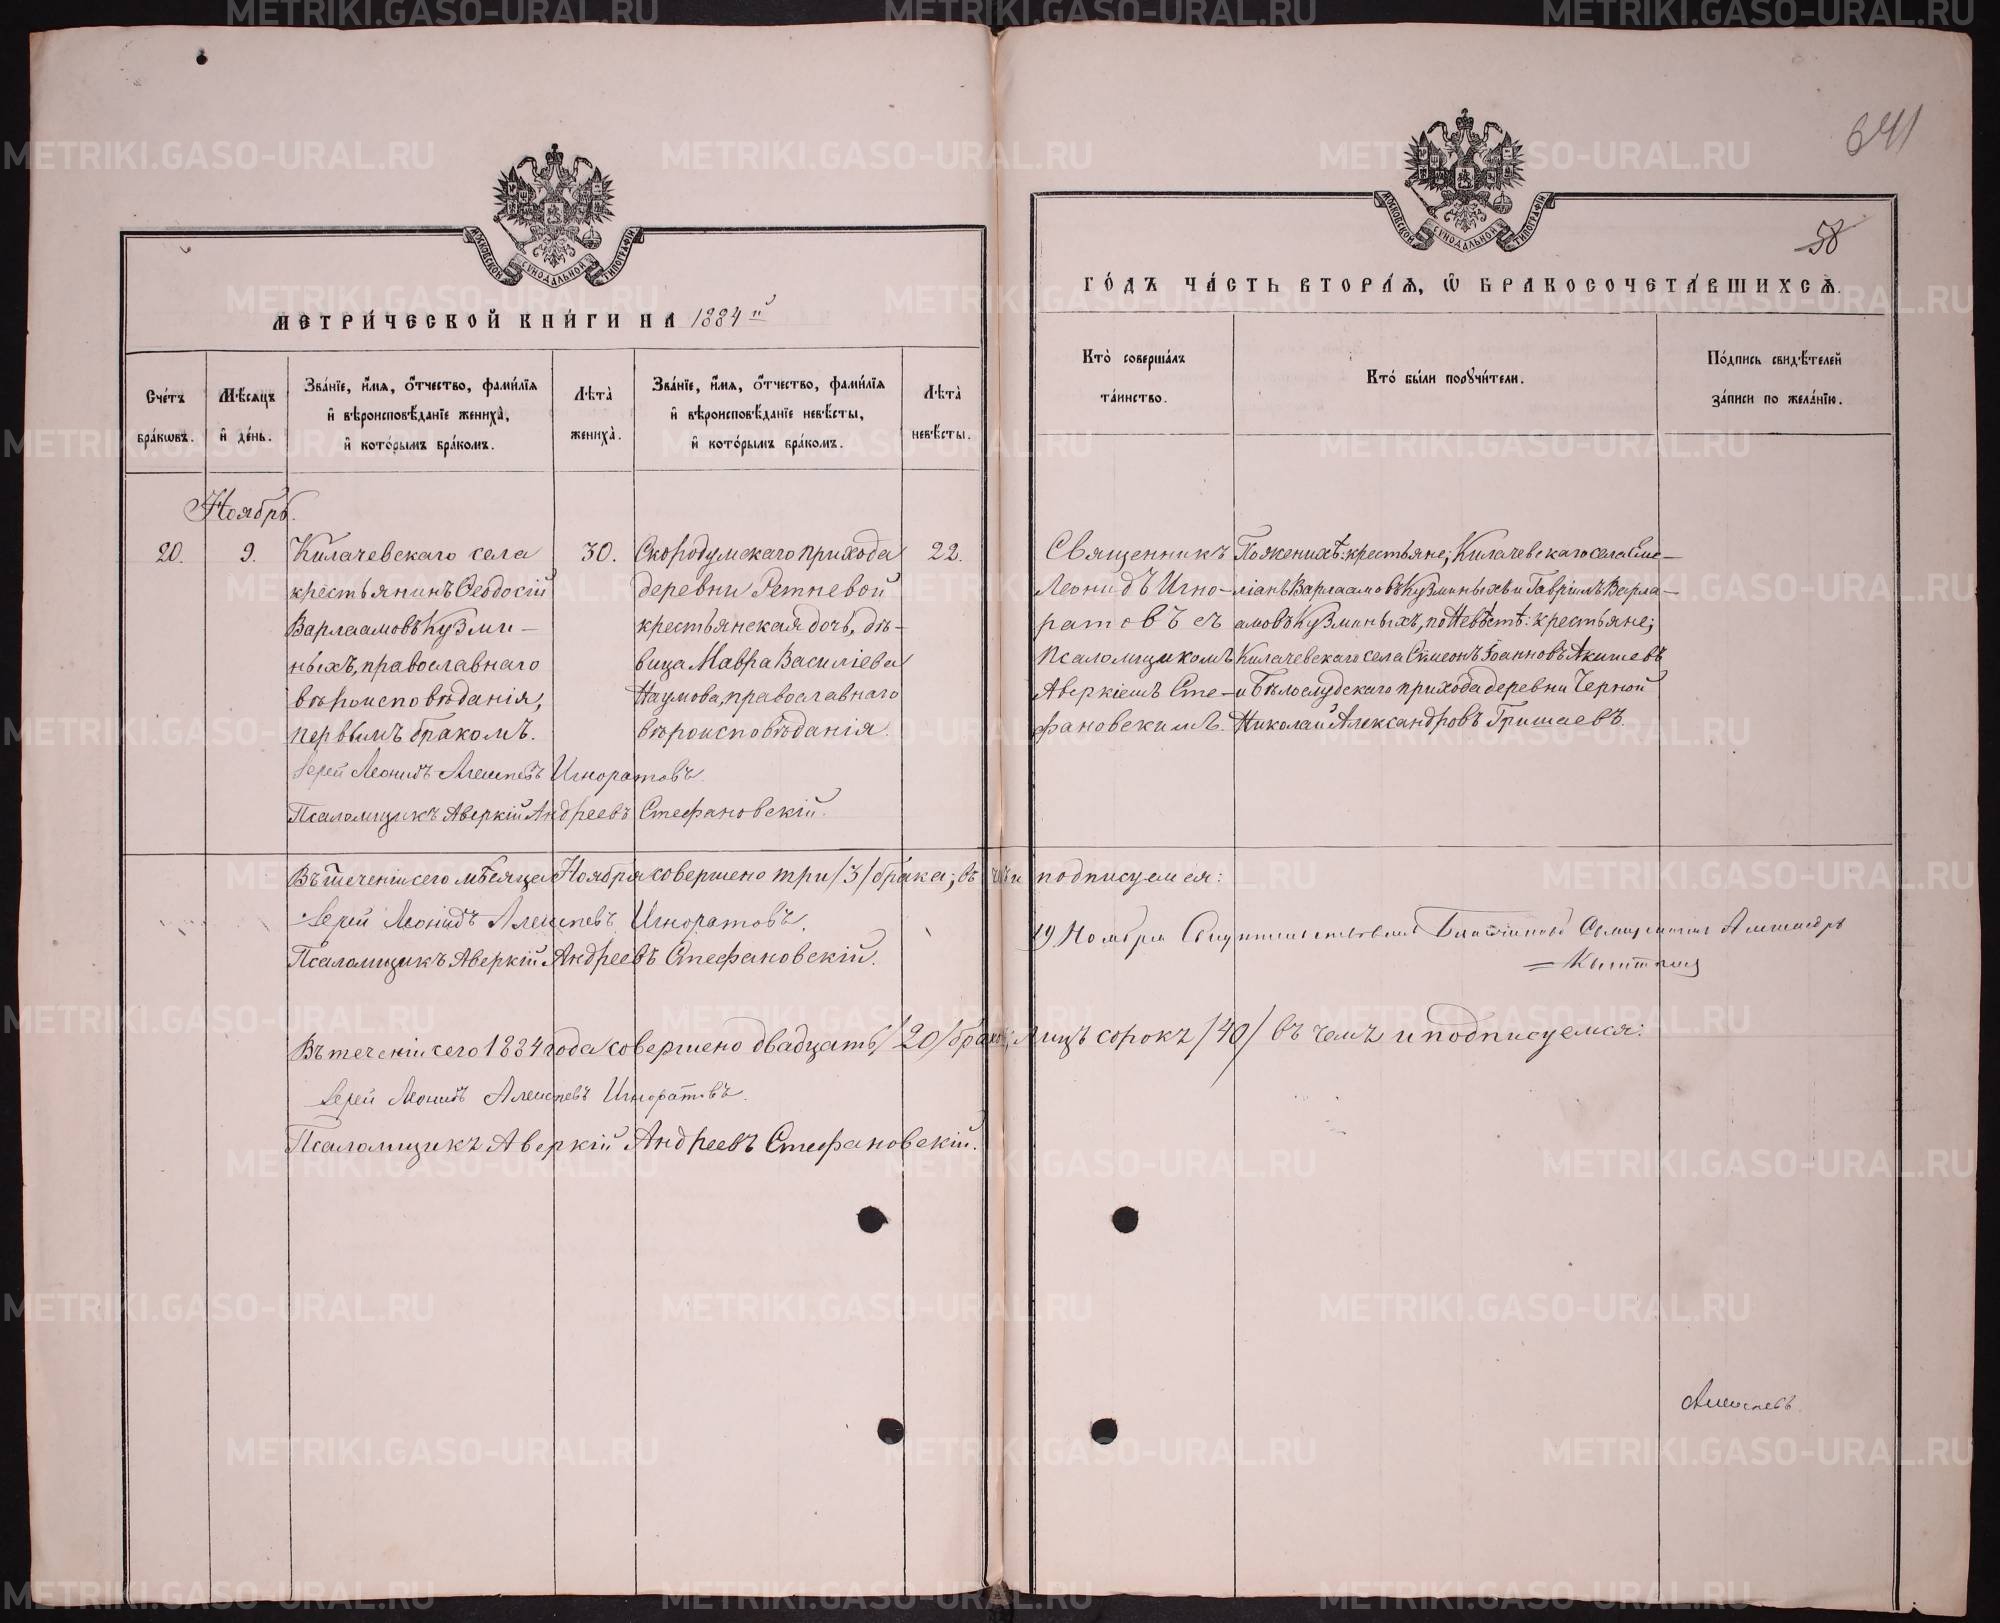 641
58
МОСКОВСКОЙ СУНОДАЛЬНОЙ ТИПОГРАФІИ
МОСКОВСКОЙ СУНОДАЛЬНОЙ ТИПОГРАФІИ
МЕТРИ́ЧЕСКОЙ КНИ́ГИ НА 1884й
ГО́ДЪ ЧА́СТЬ ВТОРА́Ѧ, Ѡ҆ БРАКОСОЧЕТА́ВШИХСѦ.
Сче́тъ бра́кѡвъ.
Мѣ́сѧцъ и҆ де́нь.
Зва́нїе, и҆́мѧ, ѻ҆́тчество, фами́лїѧ и҆ вѣроисповѣ́данїе жениха̀, и҆ кото́рымъ бра́комъ.
Лѣ́та жениха̀.
Зва́нїе, и҆́мѧ, ѻ҆́тчество, фами́лїѧ и҆ вѣроисповѣ́данїе невѣ́сты, и҆ кото́рымъ бра́комъ.
Лѣ́та невѣ́сты.
Кто̀ соверша́лъ та́инство.
Кто̀ бы́ли порꙋчи́тели.
По́дпись свидѣ́телей за́писи по жела́нїю.
Ноябрь.
20.
9.
Килачевскаго села
крестьянинъ Ѳеодосій
Варлаамовъ Кузми-
ныхъ, православнаго
вѣроисповѣданія,
первымъ бракомъ.
30.
Скородумскаго прихода
деревни Ретневой
крестьянская дочь, дѣ-
вица Мавра Василіева
Наумова, православнаго
вѣроисповѣданія.
22.
Священникъ
Леонидъ Игно-
ратовъ съ
псаломщикомъ
Аверкіемъ Сте-
фановскимъ.
По женихѣ: крестьяне; Килачевскаго села Еме-
ліанъ Варлаамовъ Кузминыхъ и Гавріилъ Варла-
амовъ Кузминыхъ, по невѣстѣ: крестьяне;
Килачевскаго села Сѵмеонъ Іоанновъ Акишевъ
и Бѣлослудскаго прихода деревни Черной
Николай Александровъ Гришаевъ.
Іерей Леонидъ Алексѣевъ Игноратовъ.
Псаломщикъ Аверкій Андреевъ Стефановскій.
Въ теченіи сего мѣсяца Ноября совершено три /3/ брака; въ чемъ и подписуемся:
Іерей Леонидъ Алексѣевъ Игноратовъ.
Псаломщикъ Аверкій Андреевъ Стефановскій.
19 Ноября Свидѣтельствовалъ Благочинный Священникъ Александръ
Въ теченіи сего 1884 года совершено двадцать /20/ браковъ, лицъ сорокъ /40/ въ чемъ и подписуемся:
Іерей Леонидъ Алексѣевъ Игноратовъ.
Псаломщикъ Аверкій Андреевъ Стефановскій.
Алексѣевъ.
METRIKI.GASO-URAL.RU